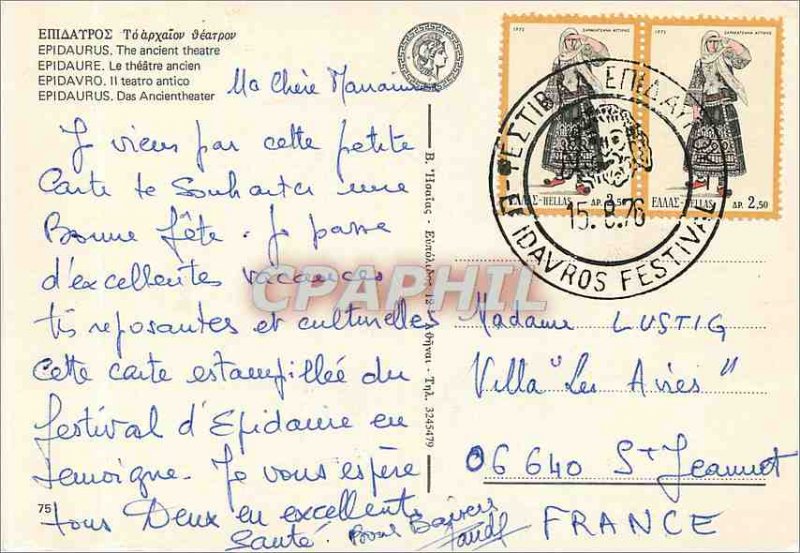 ΕΠΙΔΑΥΡΟΣ Τὸ ἀρχαῖον θέατρον
EPIDAURUS. The ancient theatre
EPIDAURE. Le théâtre ancien
EPIDAVRO. Il teatro antico
EPIDAURUS. Das Ancientheater
Ma Chère Maman
Je viens par cette petite
Carte te Souhaiter une
Bonne fête. Je passe
d'excellentes vacances
très reposantes et culturelles
Cette carte estampillée du
festival d'Epidaure en
témoigne. Je vous espère
tous Deux en excellente
Santé. Bons Baisers
75
Β. Ἠσαΐας - Εὐπόλιδος 12 - Ἀθῆναι - Τηλ. 3245479
1972
1972
ΕΛΛΑΣ-HELLAS ΔΡ. 2,50
ΕΛΛΑΣ-HELLAS ΔΡ. 2,50
ΦΕΣΤΙΒΑΛ ΕΠΙΔΑΥΡΟΥ
15.8.76
EPIDAVROS FESTIVAL
CPAPHIL
Madame LUSTIG
Villa "Les Aires"
06 640 St Jeannet
FRANCE